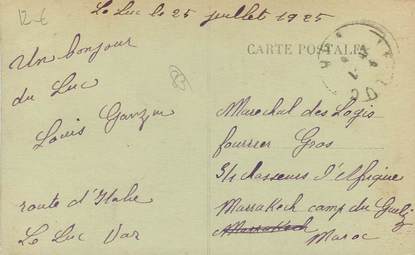 12-6
Le Luc le 25 juillet 1925
CARTE POSTALE
Un bonjour
du Luc
Louis
route d'Italie
Le Luc Var
Marechal des Logis
fourrier Gros
chasseurs d'Afrique
Marrakech camp du Gueliz
Marrakech
Maroc